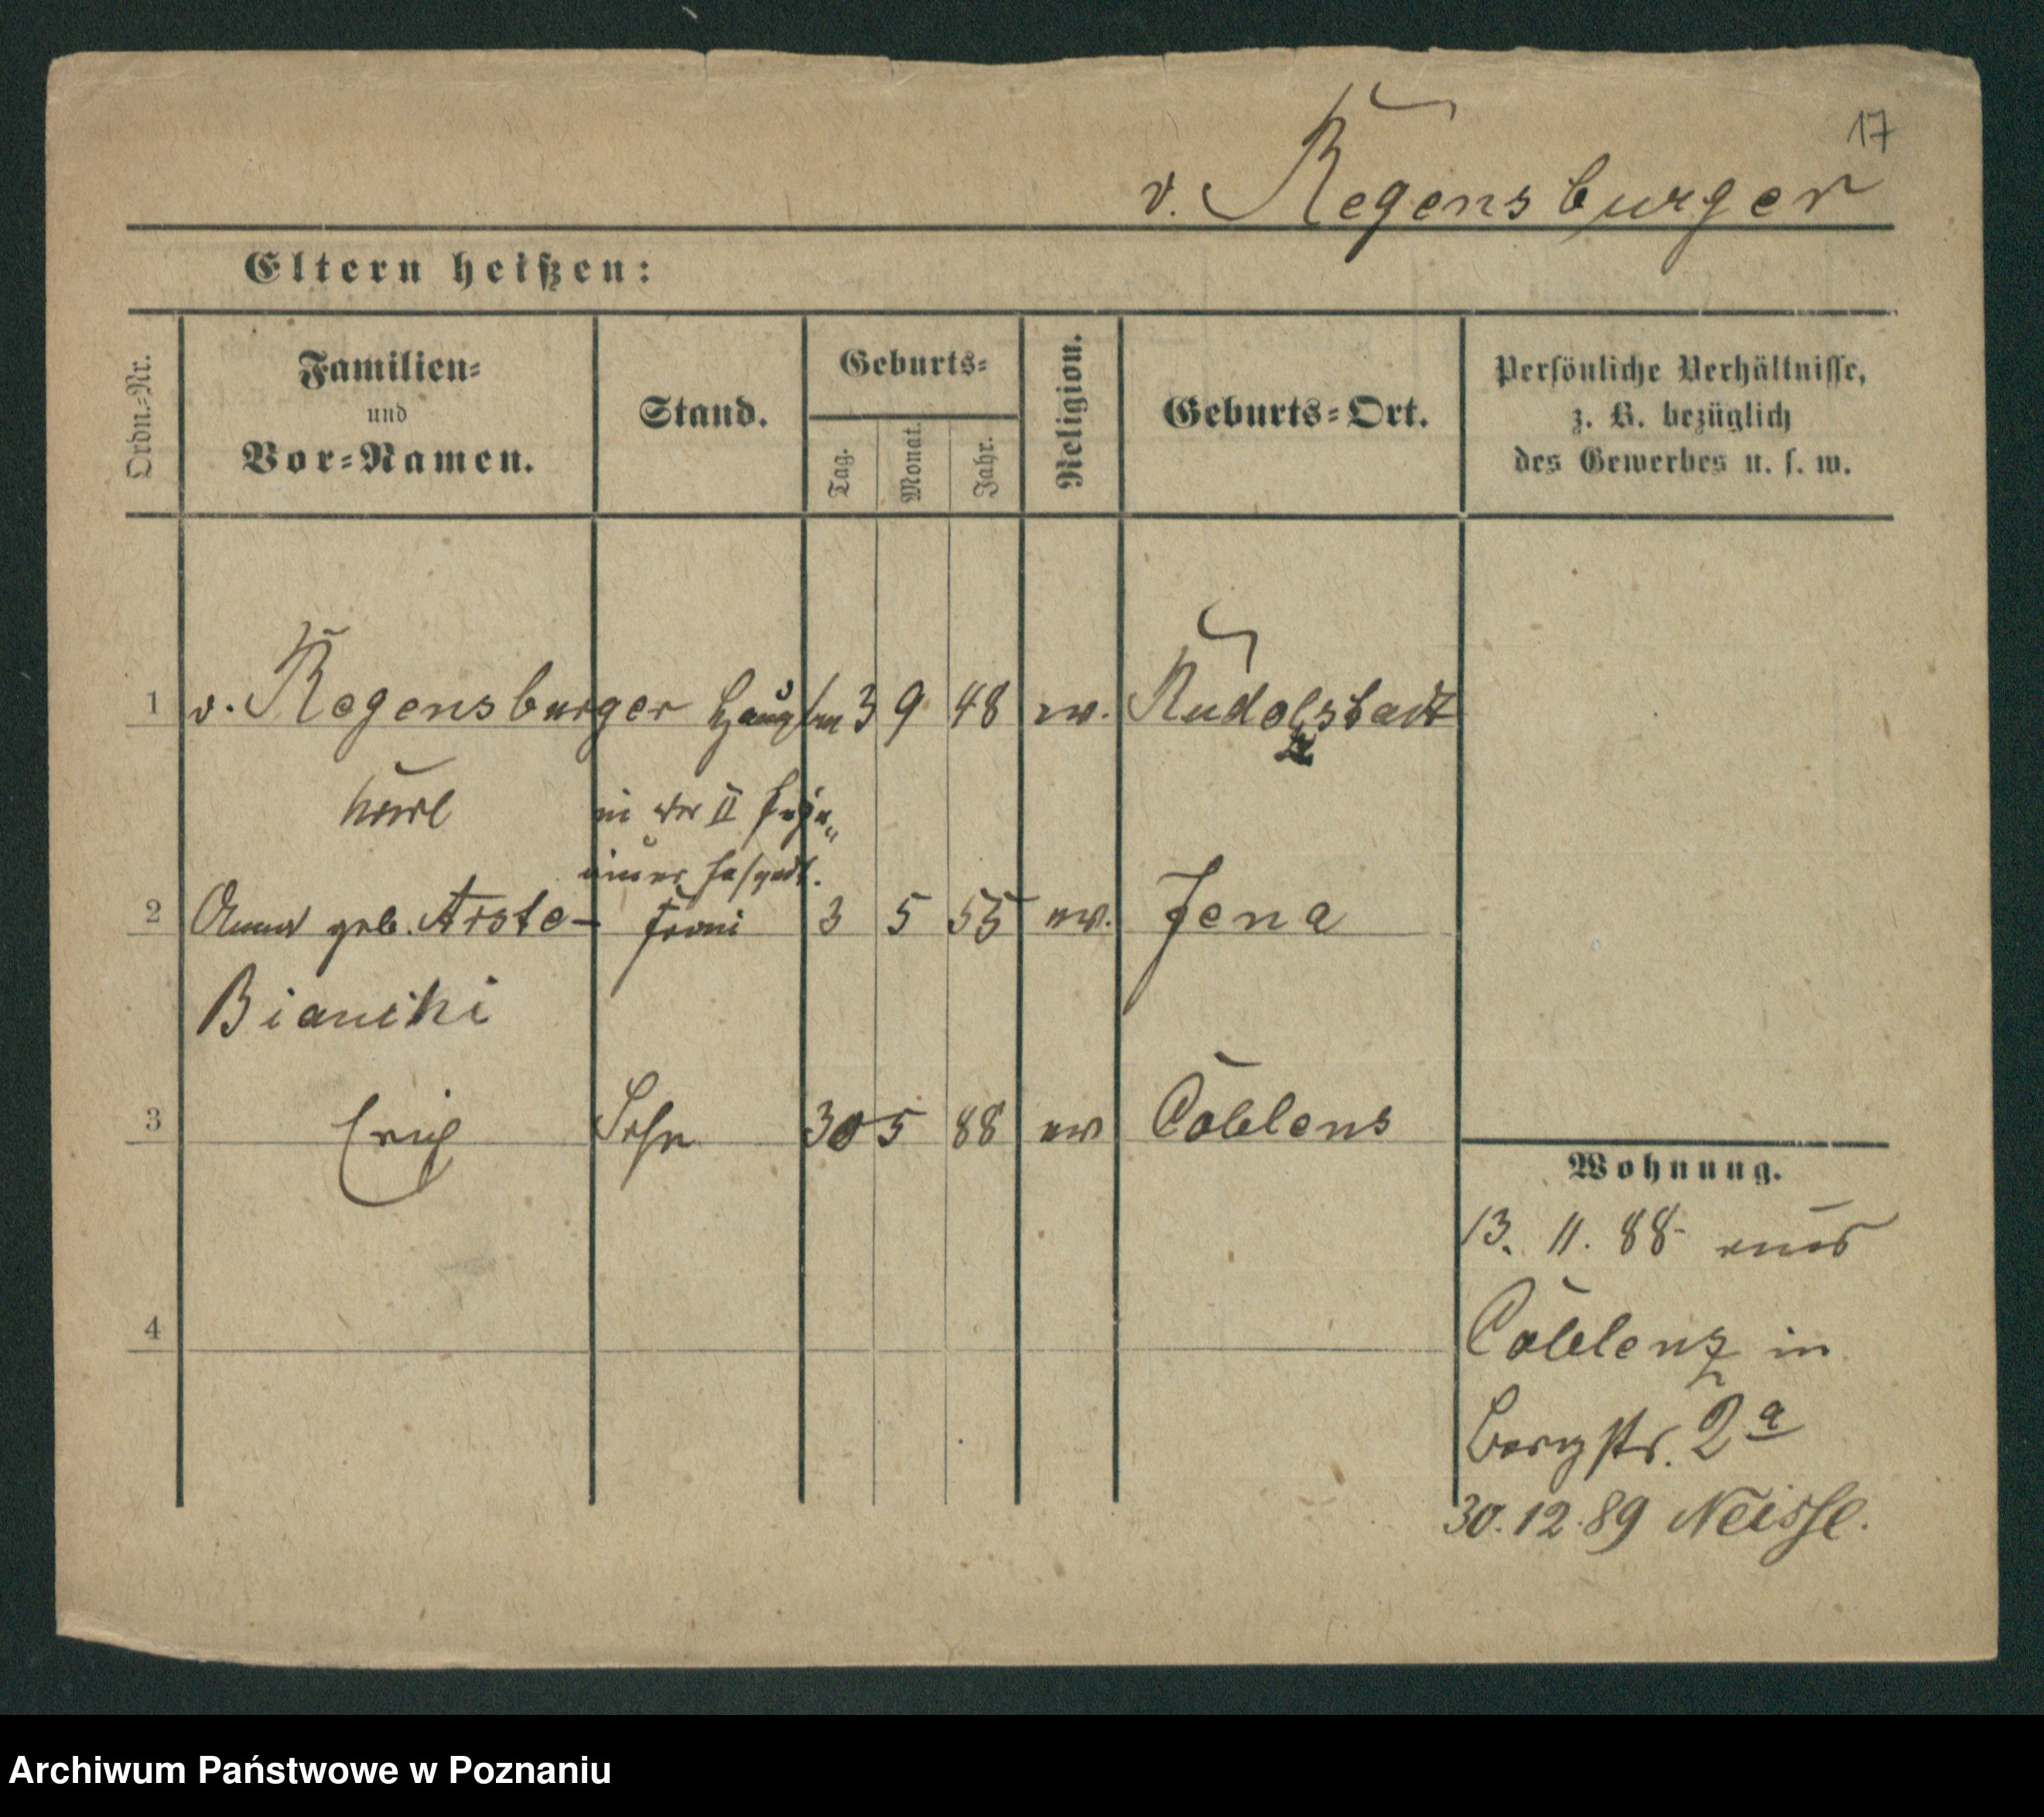 17
v. Regensburger
Eltern heißen:
Ordn.-Nr.
Familien-
und
Vor-Namen.
Stand.
Geburts-
Tag.
Monat.
Jahr.
Religion.
Geburts-Ort.
Persönliche Verhältnisse,
z. B. bezüglich
des Gewerbes u. s. w.
1 v. Regensburger Hauptm 3 9 48 ev. Rudolstadt
Karl
in der II Inge-
nieur Inspect.
2 Anna geb. Arste- Frau 3 5 55 ev. Jena
Bianchi
3 Erich Sohn 30 5 88 ev Coblens
4
Wohnung.
13. 11. 88 aus
Coblenz in
Bergstr. 2a
30.12.89 Neisse.
Archiwum Państwowe w Poznaniu